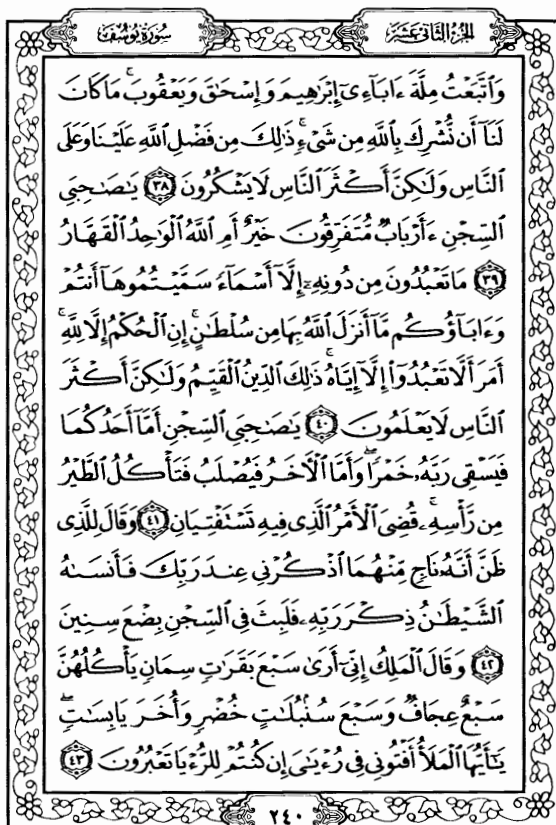 سُورَةُ يُوسُفَ
الجُزءُ الثَّانِي عَشَرَ
وَٱتَّبَعْتُ مِلَّةَ ءَابَآءِىٓ إِبْرَٰهِيمَ وَإِسْحَٰقَ وَيَعْقُوبَ ۚ مَا كَانَ
لَنَآ أَن نُّشْرِكَ بِٱللَّهِ مِن شَىْءٍ ۚ ذَٰلِكَ مِن فَضْلِ ٱللَّهِ عَلَيْنَا وَعَلَى
ٱلنَّاسِ وَلَٰكِنَّ أَكْثَرَ ٱلنَّاسِ لَا يَشْكُرُونَ ٣٨ يَٰصَٰحِبَىِ
ٱلسِّجْنِ ءَأَرْبَابٌ مُّتَفَرِّقُونَ خَيْرٌ أَمِ ٱللَّهُ ٱلْوَٰحِدُ ٱلْقَهَّارُ
٣٩ مَا تَعْبُدُونَ مِن دُونِهِۦٓ إِلَّآ أَسْمَآءً سَمَّيْتُمُوهَآ أَنتُمْ
وَءَابَآؤُكُم مَّآ أَنزَلَ ٱللَّهُ بِهَا مِن سُلْطَٰنٍ ۚ إِنِ ٱلْحُكْمُ إِلَّا لِلَّهِ ۚ
أَمَرَ أَلَّا تَعْبُدُوٓا۟ إِلَّآ إِيَّاهُ ۚ ذَٰلِكَ ٱلدِّينُ ٱلْقَيِّمُ وَلَٰكِنَّ أَكْثَرَ
ٱلنَّاسِ لَا يَعْلَمُونَ ٤٠ يَٰصَٰحِبَىِ ٱلسِّجْنِ أَمَّآ أَحَدُكُمَا
فَيَسْقِى رَبَّهُۥ خَمْرًا ۖ وَأَمَّا ٱلْءَاخَرُ فَيُصْلَبُ فَتَأْكُلُ ٱلطَّيْرُ
مِن رَّأْسِهِۦ ۚ قُضِىَ ٱلْأَمْرُ ٱلَّذِى فِيهِ تَسْتَفْتِيَانِ ٤١ وَقَالَ لِلَّذِى
ظَنَّ أَنَّهُۥ نَاجٍ مِّنْهُمَا ٱذْكُرْنِى عِندَ رَبِّكَ فَأَنسَىٰهُ
ٱلشَّيْطَٰنُ ذِكْرَ رَبِّهِۦ فَلَبِثَ فِى ٱلسِّجْنِ بِضْعَ سِنِينَ
٤٢ وَقَالَ ٱلْمَلِكُ إِنِّىٓ أَرَىٰ سَبْعَ بَقَرَٰتٍ سِمَانٍ يَأْكُلُهُنَّ
سَبْعٌ عِجَافٌ وَسَبْعَ سُنۢبُلَٰتٍ خُضْرٍ وَأُخَرَ يَابِسَٰتٍ ۖ
يَٰٓأَيُّهَا ٱلْمَلَأُ أَفْتُونِى فِى رُءْيَٰىَ إِن كُنتُمْ لِلرُّءْيَا تَعْبُرُونَ ٤٣
٢٤٠